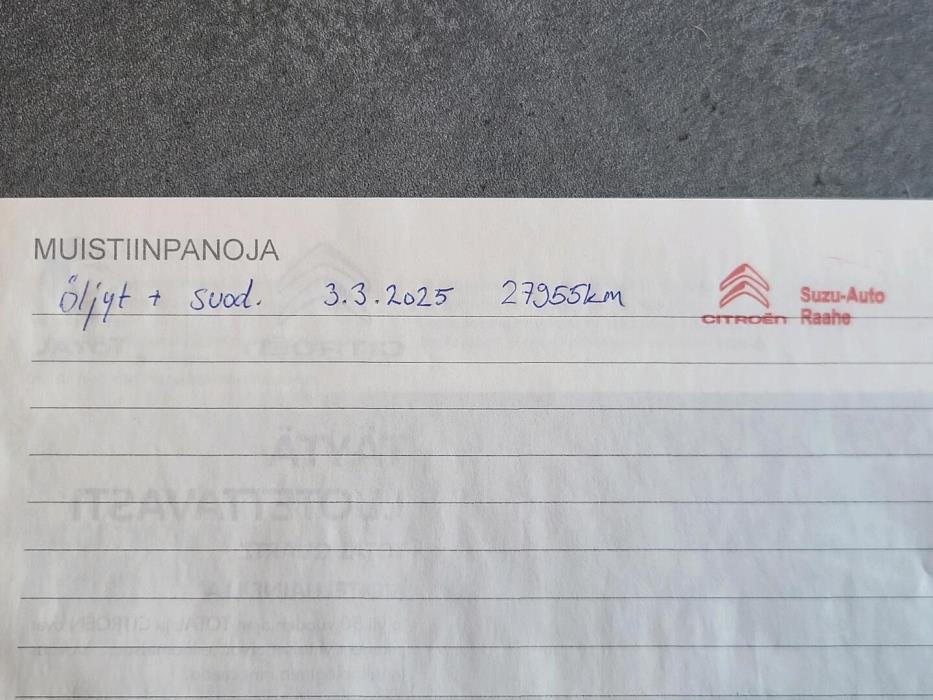 MUISTIINPANOJA
öljyt + suod. 3.3.2025 27955km
CITROËN Suzu-Auto
Raahe